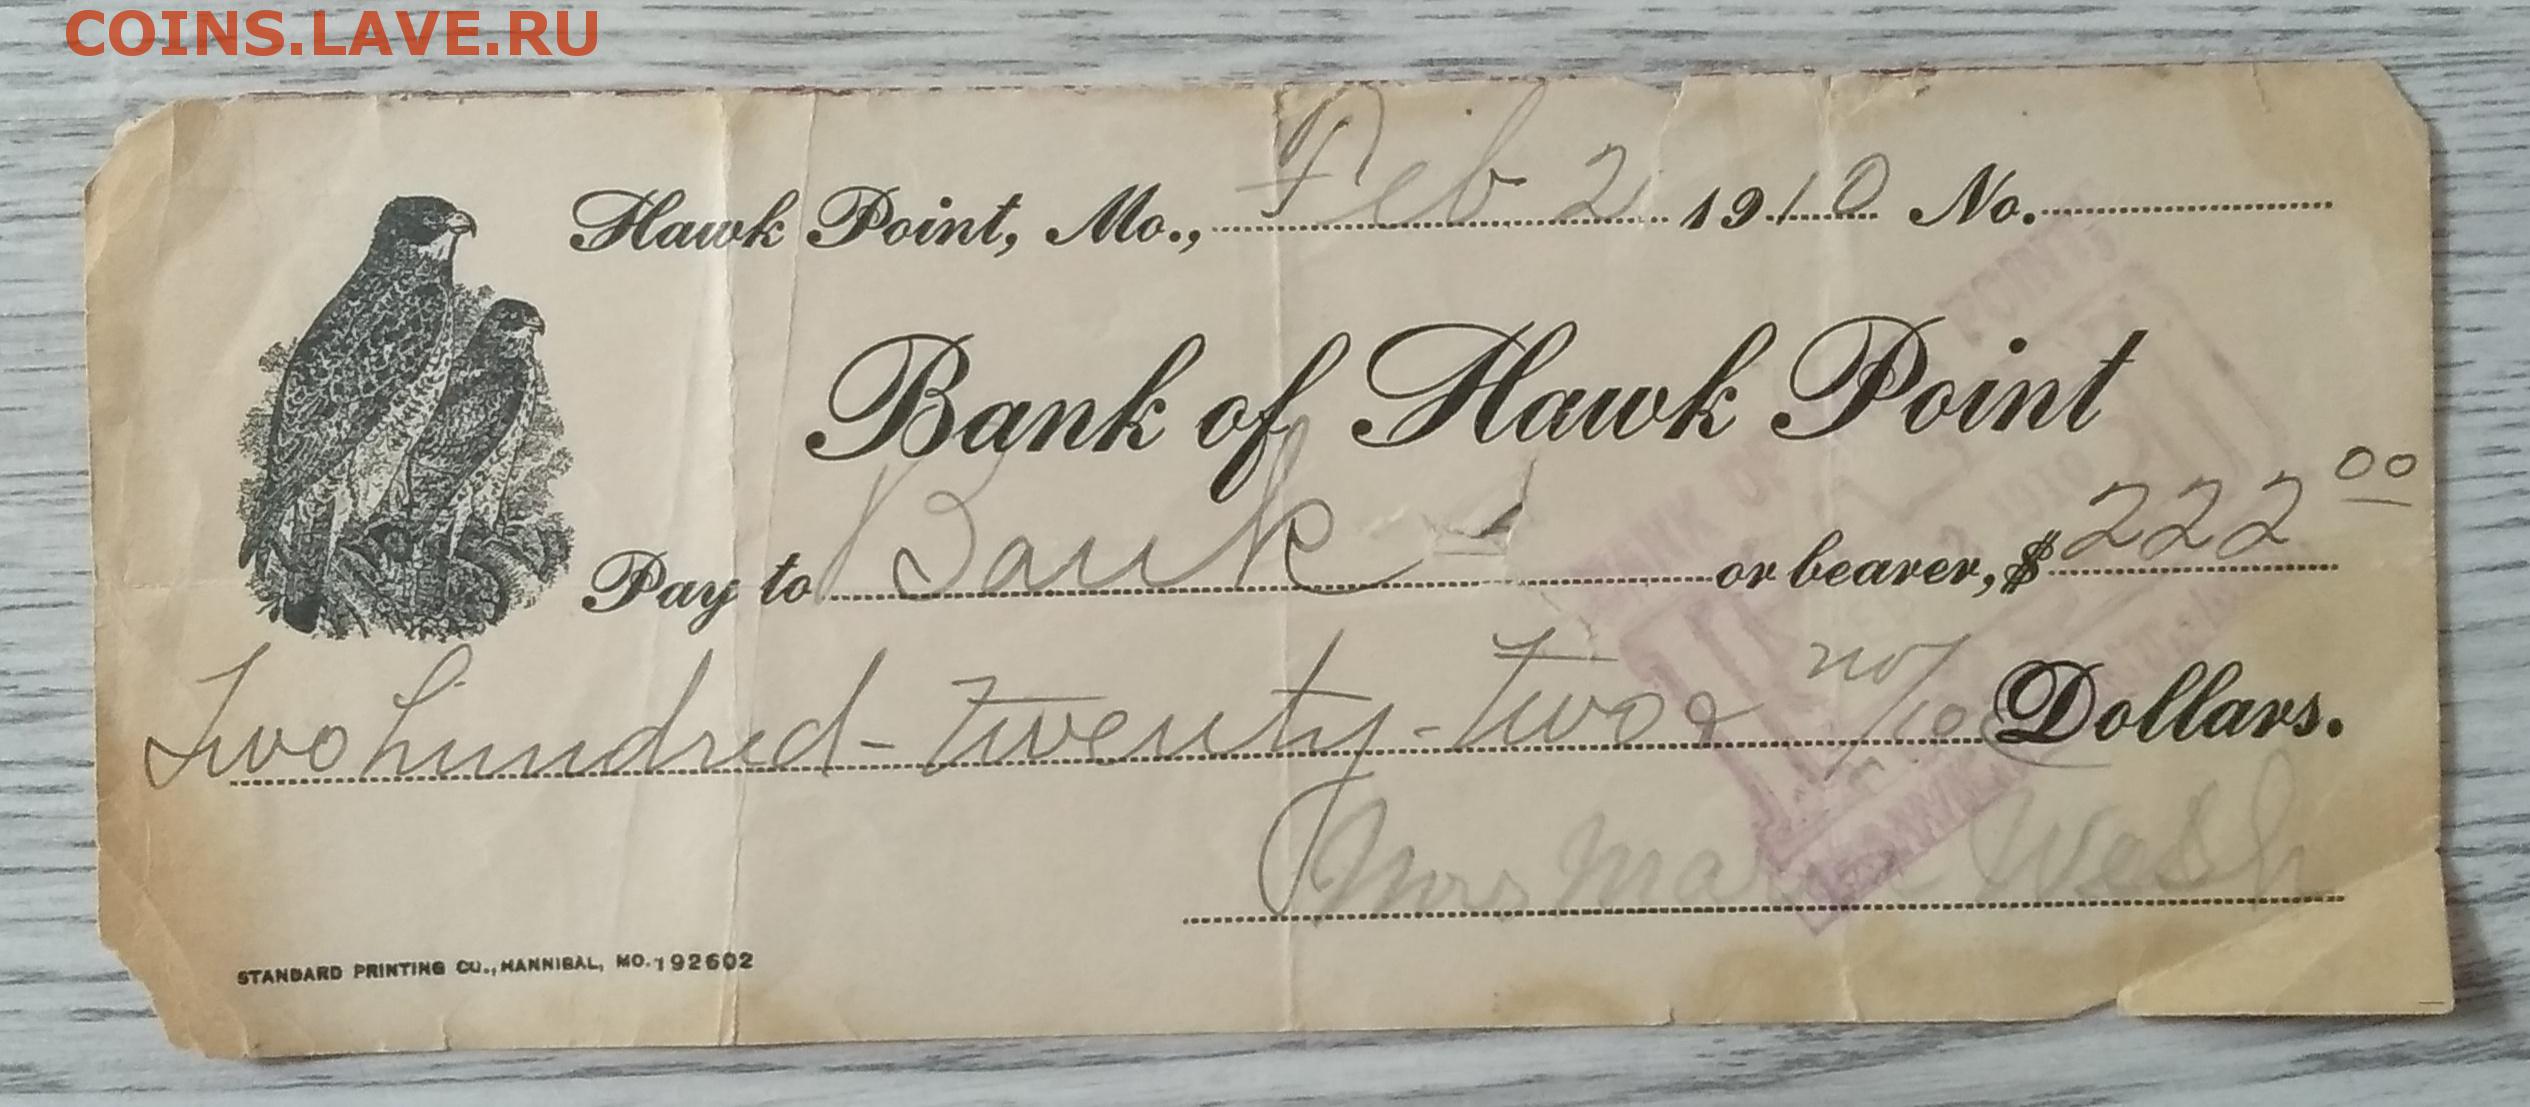 COINS.LAVE.RU
Hawk Point, Mo., Feb 2 1910 No.
Bank of Hawk Point
Pay to Bank or bearer, $ 222 00
Two hundred - twenty - two & no/100 Dollars.
Mrs
STANDARD PRINTING CO., HANNIBAL, MO. 192602
BANK OF
2 1910